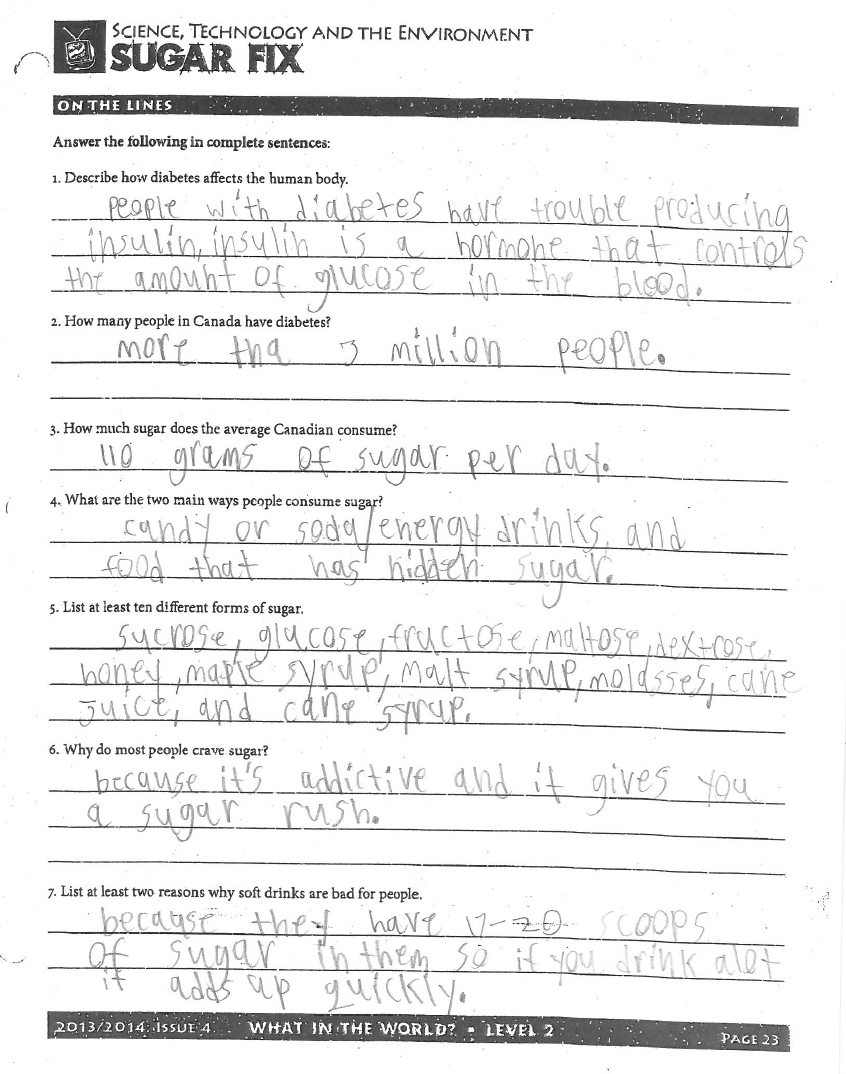 SCIENCE, TECHNOLOGY AND THE ENVIRONMENT
SUGAR FIX
ON THE LINES
Answer the following in complete sentences:
1. Describe how diabetes affects the human body.
people with diabetes have trouble producing
insulin, insulin is a hormone that controls
the amount of glucose in the blood.
2. How many people in Canada have diabetes?
more tha 3 million people.
3. How much sugar does the average Canadian consume?
110 grams of sugar per day.
4. What are the two main ways people consume sugar?
candy or soda/energy drinks, and
food that has hidden sugar.
5. List at least ten different forms of sugar.
sucrose, glucose, fructose, maltose, dextrose,
honey, maple syrup, malt syrup, molasses, cane
juice, and cane syrup.
6. Why do most people crave sugar?
because it's addictive and it gives you
a sugar rush.
7. List at least two reasons why soft drinks are bad for people.
because they have 17-20 scoops
of sugar in them so if you drink alot
it adds up quickly.
2013/2014: ISSUE 4 WHAT IN THE WORLD? • LEVEL 2 PAGE 23